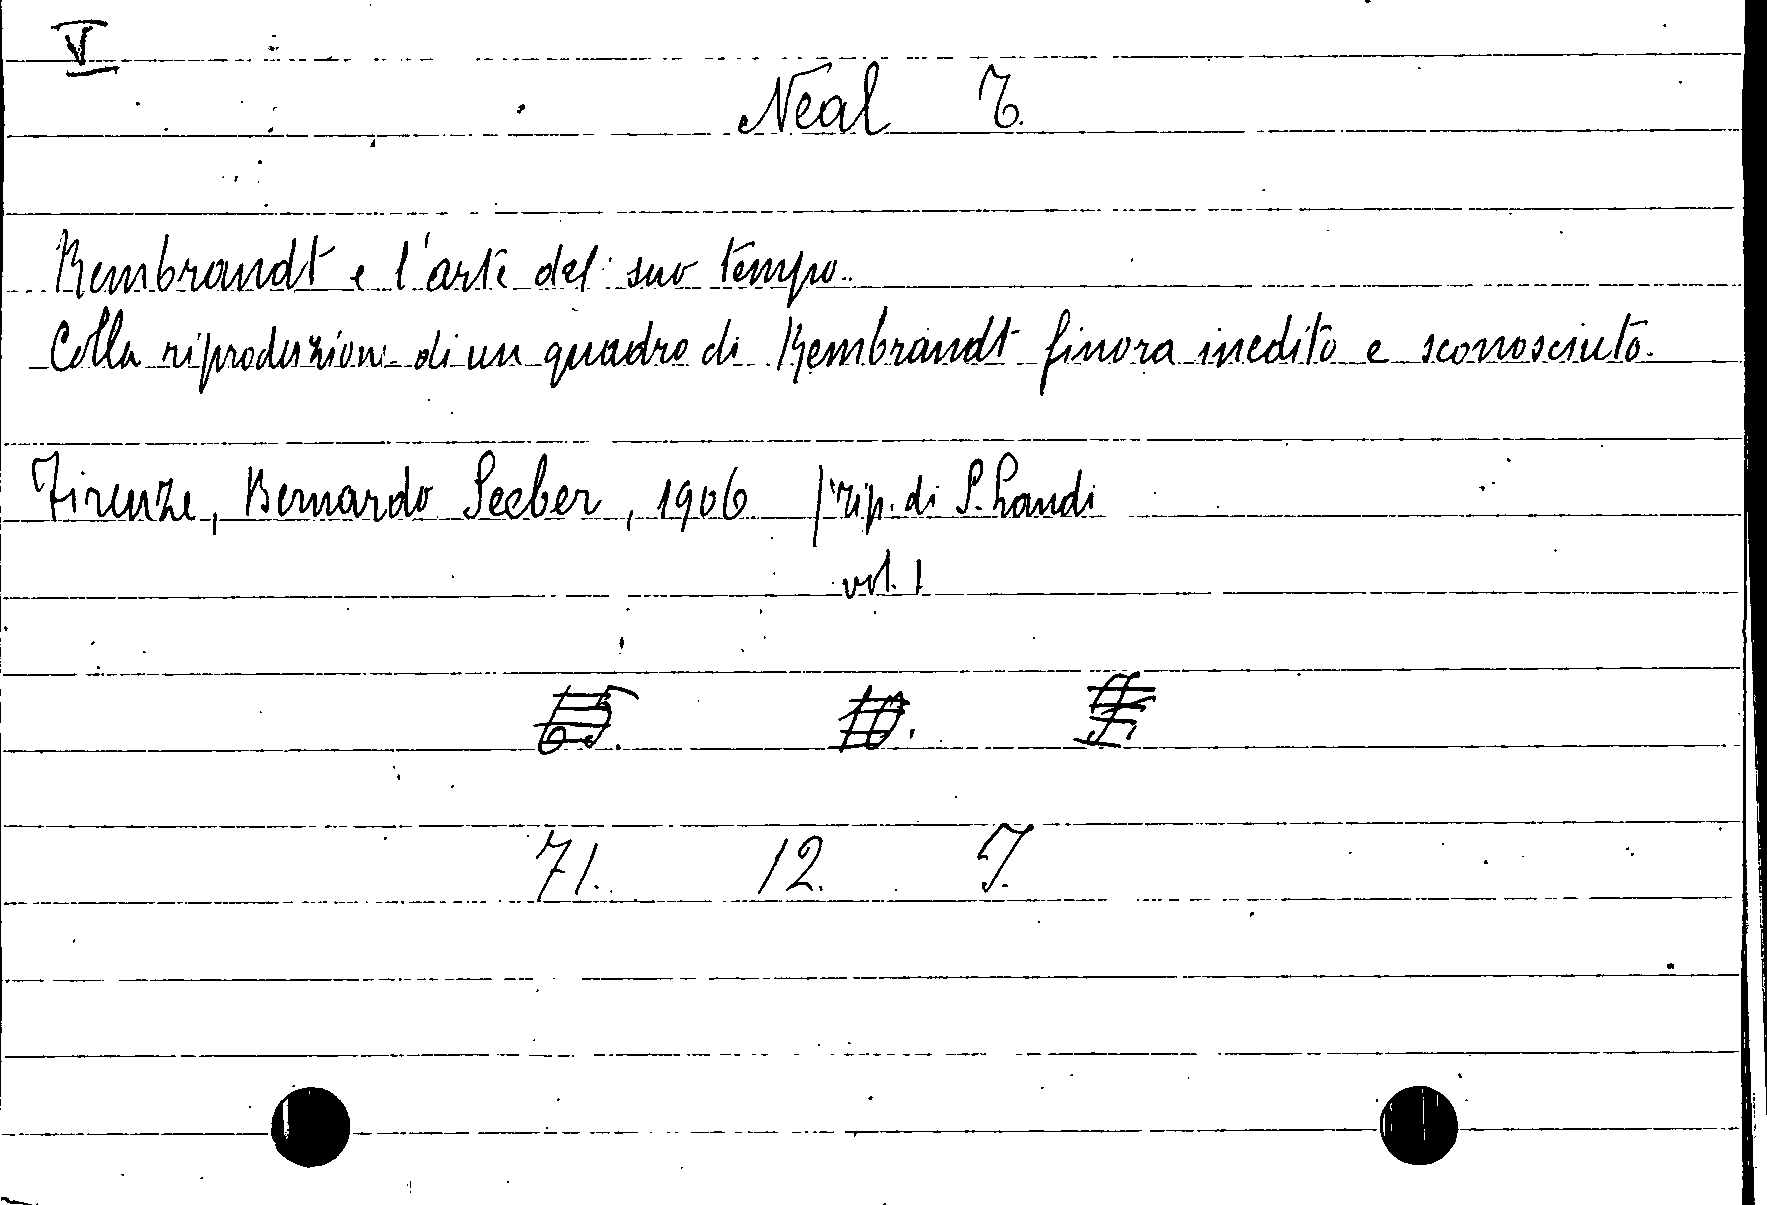 V
Neal T.
Rembrandt e l'arte del suo tempo.
Colla riproduzione di un quadro di Rembrandt finora inedito e sconosciuto.
Firenze, Bernardo Seeber, 1906 tip. di S. Landi
vol. 1
65. 10.
71. 12. J.